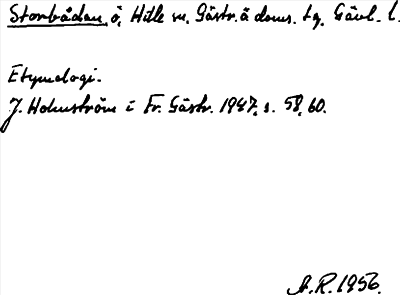 Storbådan, ö, Hille sn. Gästr. ä. doms. tg. Gävl. l.
Etymologi.
J. Holmström i Fr. Gästr. 1947, s. 58, 60.
A.R. 1956.